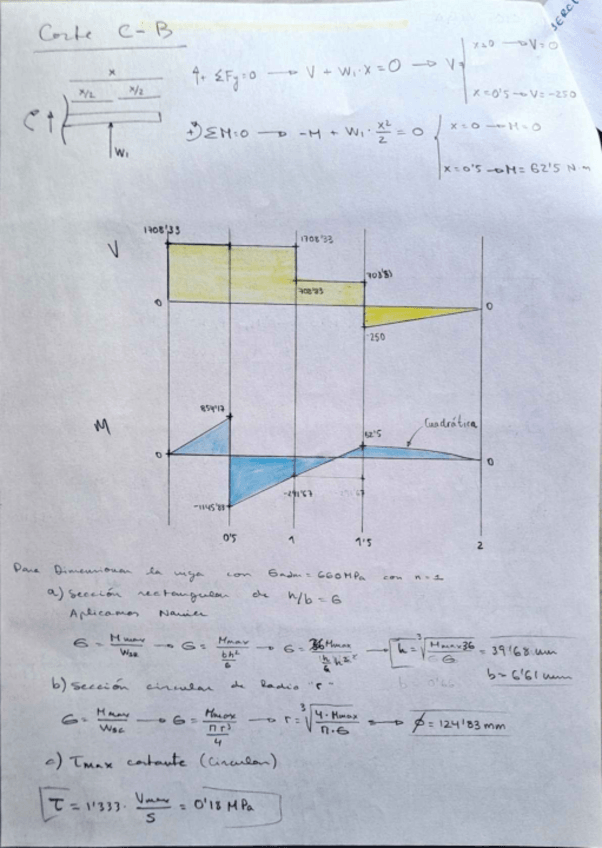 Corte C-B
x
x/2 x/2
C
W₁
↑+ ΣFy=0 → V + W₁·x = 0 → V
x=0 → V=0
x=0'5 → V=-250
+↺ ΣM=0 → -M + W₁·x²/2 = 0
x=0 → M=0
x=0'5 → M=62'5 N·m
V
1708'33
1708'33
708'33
708'33
0
0
-250
M
854'17
62'5
Cuadrática
0
0
-1145'83
-291'67
0'5 1 1'5 2
Para Dimensionar la viga con σadm = 660MPa con n=1
a) Sección rectangular de h/b = 6
Aplicamos Navier
σ = Mmax/Wzz → σ = Mmax/(bh²/6) → σ = 36Mmax/(h·h²) → h = ³√(Mmax36/σ) = 39'68 mm
b = 6'61 mm
b) Sección circular de Radio "r"
σ = Mmax/Wzz → σ = Mmax/(πr³/4) → r = ³√(4·Mmax/π·σ) → ϕ = 124'83 mm
c) Tmax cortante (Circular)
τ = 1'333 · Vmax/S = 0'18 MPa